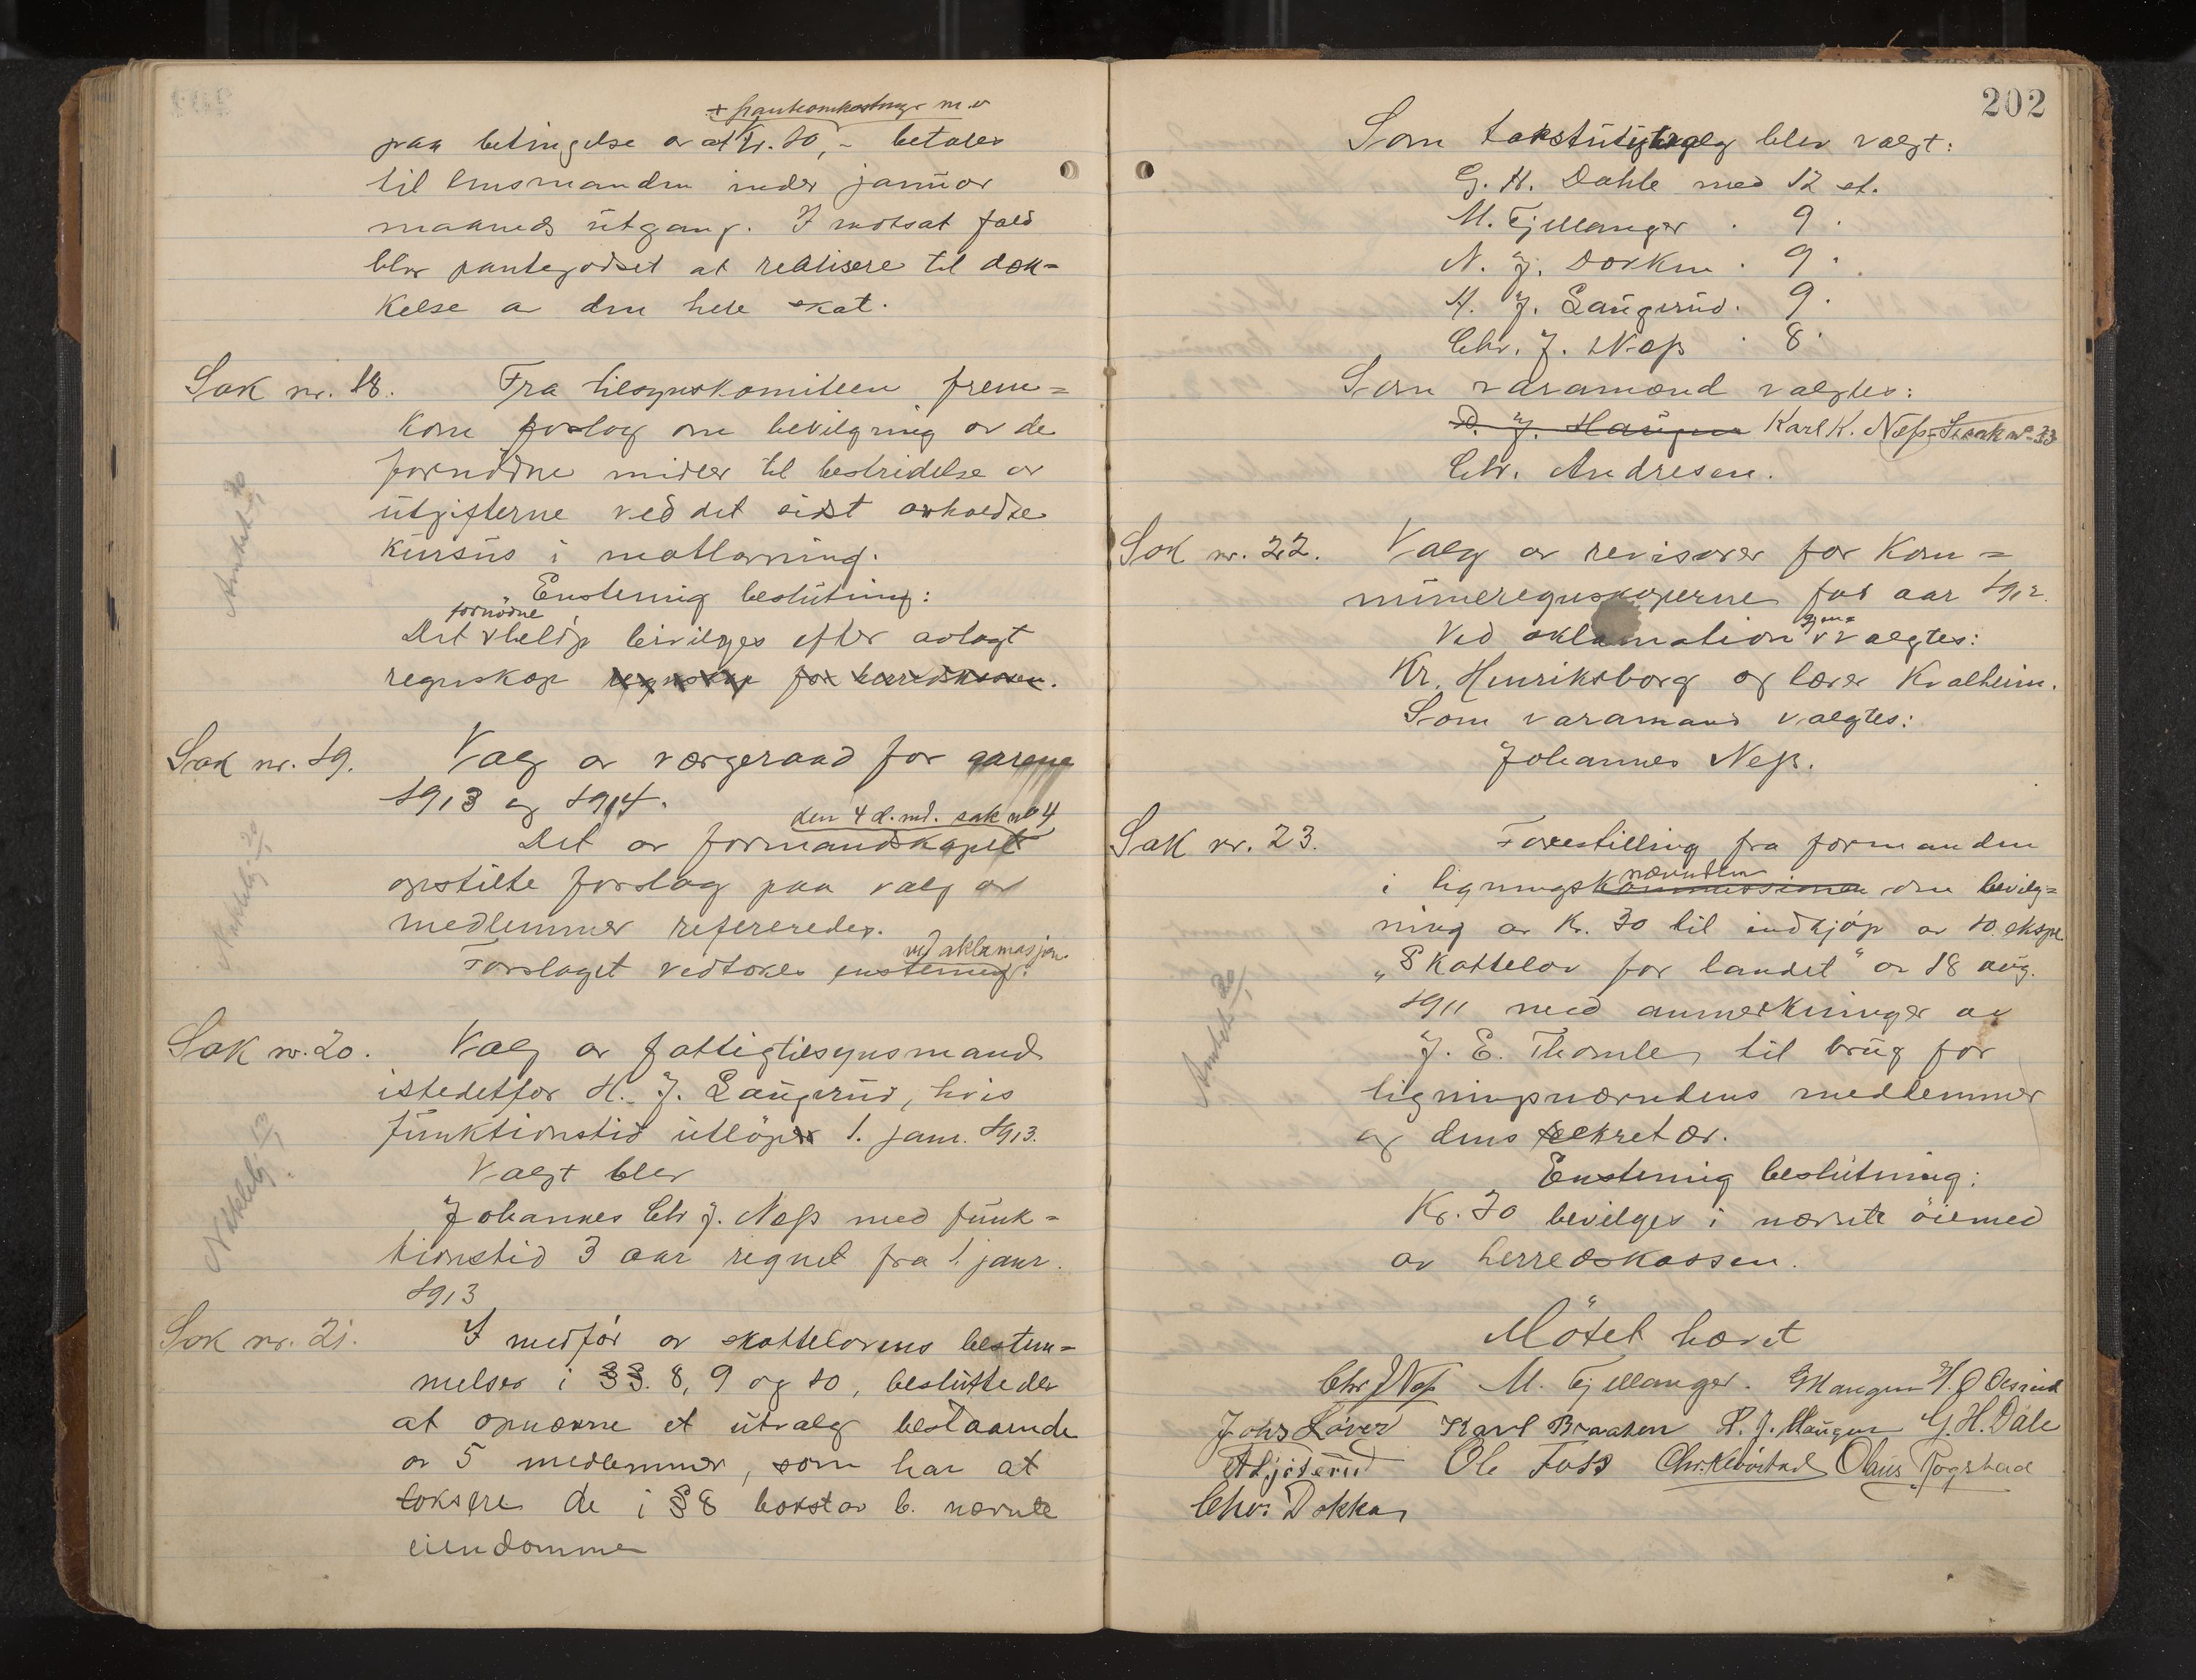 + panteomkostninger m.v
paa betingelse av at Kr. 10,- betales
til lensmanden inder januar
maaneds utgang. I motsat fald
blir pantegodset at realisere til dæk=
kelse av den hele skat.
Sak nr. 18. Fra tilsynskomiteen frem=
kom forslag om bevilgning av de
fornödne midler til bestridelse av
utgifterne ved det sidst avholdte
kursus i matlavning.
Enstemig beslutning:
fornödne
Det v belöp bevilges efter avlagt
regnskap regnskap for herredskassen.
Sak nr. 19. Valg av værgeraad for aarene
1913 og 1914.
den 4 d.md. sak nr 4
Det av formandskapet
opstilte forslag paa valg av
medlemmer refereredes.
ved aklamasjon.
Forslaget vedtokes enstemig.
Sak nr. 20. Valg av fattigtilsynsmand
istedetfor H. J. Laugerud, hvis
funktionstid utlöper 1. jan. 1913.
Valgt blev
Johannes Chr J. Næss med funk=
tionstid 3 aar regnet fra 1. janr.
1913
Sak nr. 21. I medför av skattelovens bestem=
melser i §§. 8, 9 og 10, besluttedes
at opnævne et utvalg bestaaende
av 5 medlemmer, som har at
taksere de i § 8 bokstav b. nævnte
eiendomme
202
Som takstutvalg blev valgt:
G. H. Dahle med 12 st.
M. Gjellanger . 9 .
N. J. Dokken . 9 .
H. J. Laugerud . 9 .
Chr. J. Næss . 8 .
Som varamænd valgtes:
P. J. Haugen Karl K. Næss - Se sak nr. 33
Chr. Andresen.
Sak nr. 22. Valg av revisorer for kom=
muneregnskaperne for aar 1912.
gjen=
Ved aklamation v valgtes:
Kr. Henriksborg og lærer Kvalheim.
Som varamand valgtes:
Johannes Næss.
Sak nr. 23. Forestilling fra formanden
nævnden
i ligningskommissionen om bevilg=
ning av Kr. 30 til indkjöp av 10 ekspl.
"Skattelov for landet" av 18 aug.
1911 med anmerkninger av
J. E. Thomle, til brug for
ligningsnævndens medlemmer
og dens sekretær.
Enstemig beslutning:
Kr. 30 bevilges i nævnte öiemed
av herredskassen.
Mötet hævet
Chr J Næss M. Gjellanger. G Haugen
Johs Löver Karl Braaten P. J. Haugen G. H. Dale
Ole Foss Chr. Kleivstad Olaus Rogstad
Chr. Dokka